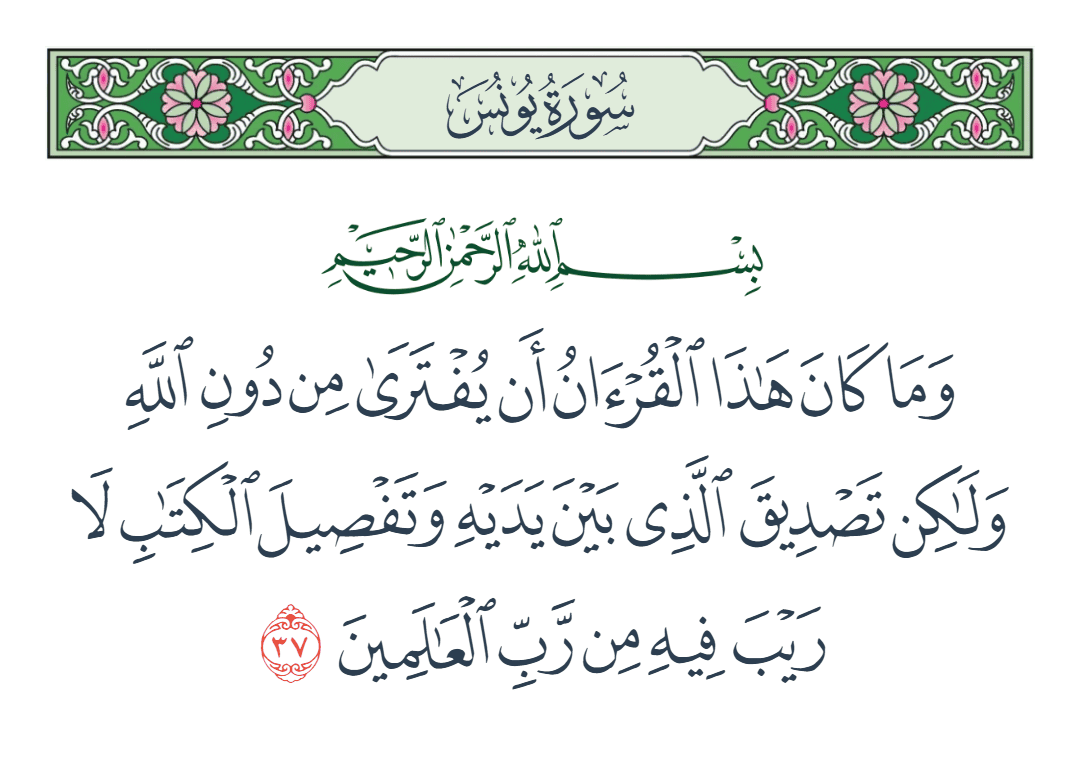 سُورَةُ يُونُسَ
بِسْمِ ٱللَّهِ ٱلرَّحْمَٰنِ ٱلرَّحِيمِ
وَمَا كَانَ هَٰذَا ٱلْقُرْءَانُ أَن يُفْتَرَىٰ مِن دُونِ ٱللَّهِ
وَلَٰكِن تَصْدِيقَ ٱلَّذِى بَيْنَ يَدَيْهِ وَتَفْصِيلَ ٱلْكِتَٰبِ لَا
رَيْبَ فِيهِ مِن رَّبِّ ٱلْعَٰلَمِينَ ٣٧